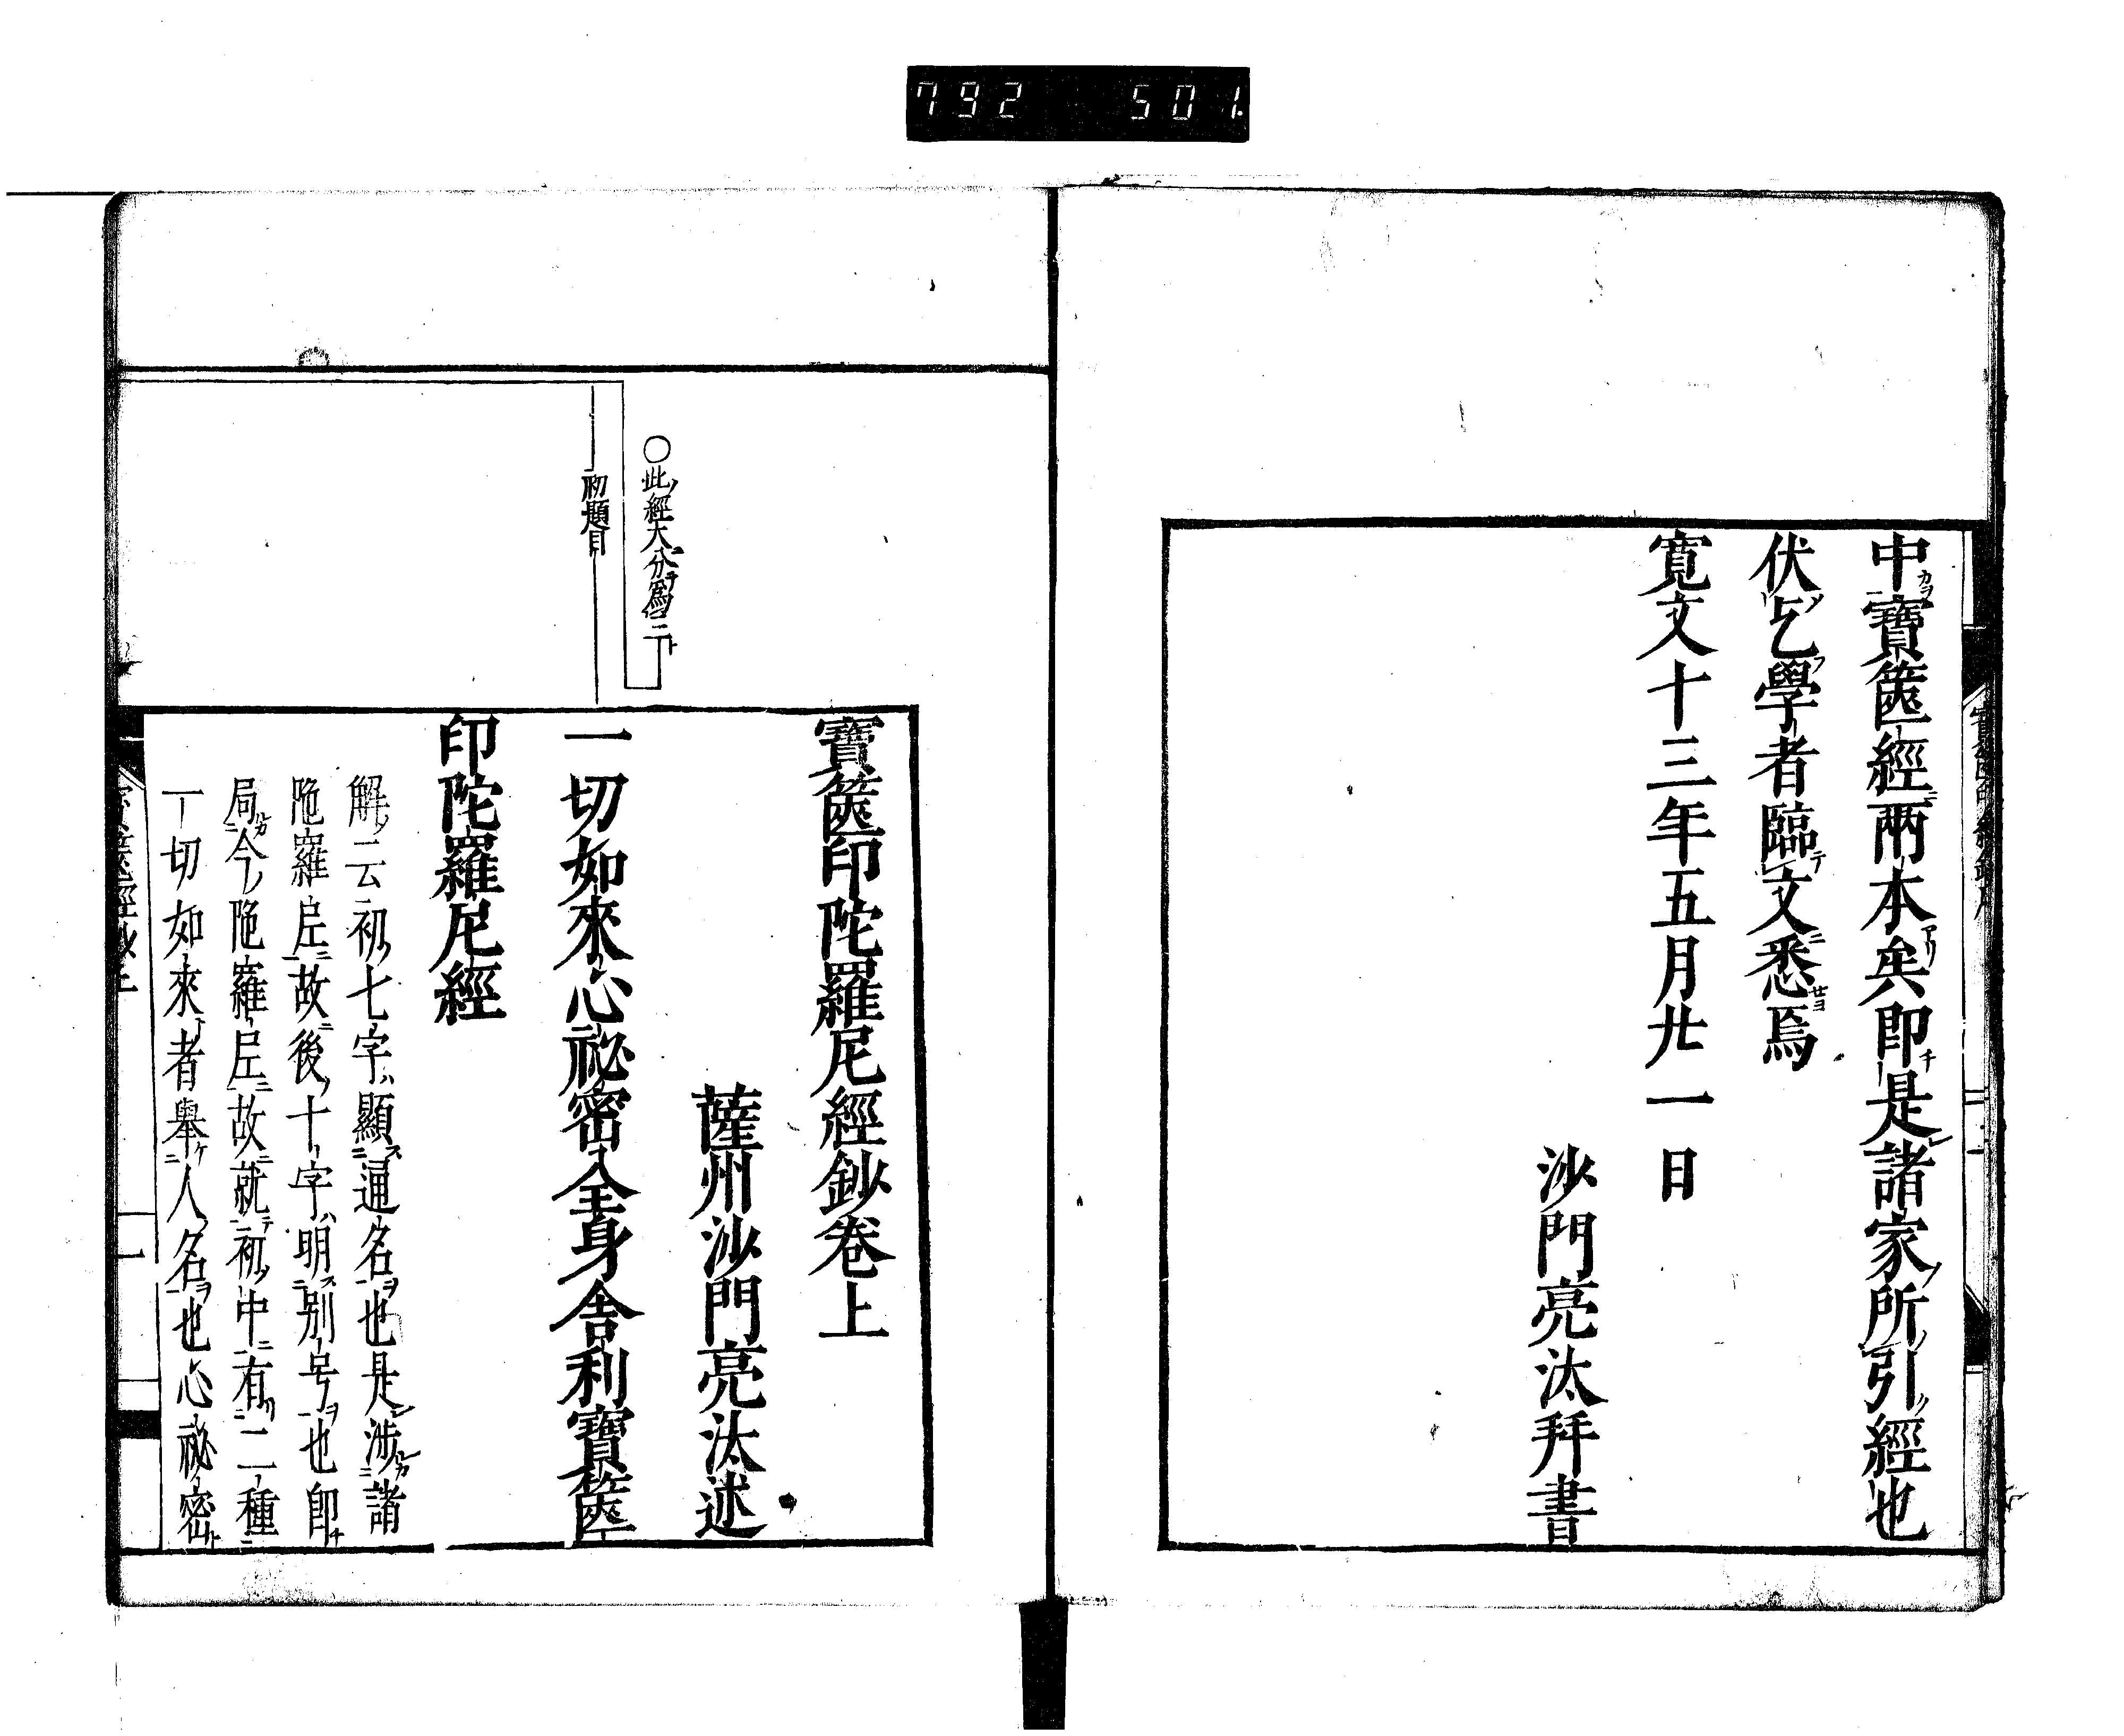 792 501
中寶篋經兩本矣即是諸家所引經也
伏乞學者臨文悉焉
寛文十三年五月廿一日
沙門亮汰拜書
○此經大分爲二
初題目
寶篋印陀羅尼經鈔卷上
薩州沙門亮汰述
一切如來心祕密全身舍利寶篋
印陀羅尼經
解云初七字顯通名也是涉諸
陁羅尼故後十字明別号也即
局今陁羅尼故就初中有二種
一切如來者舉人名也心祕密